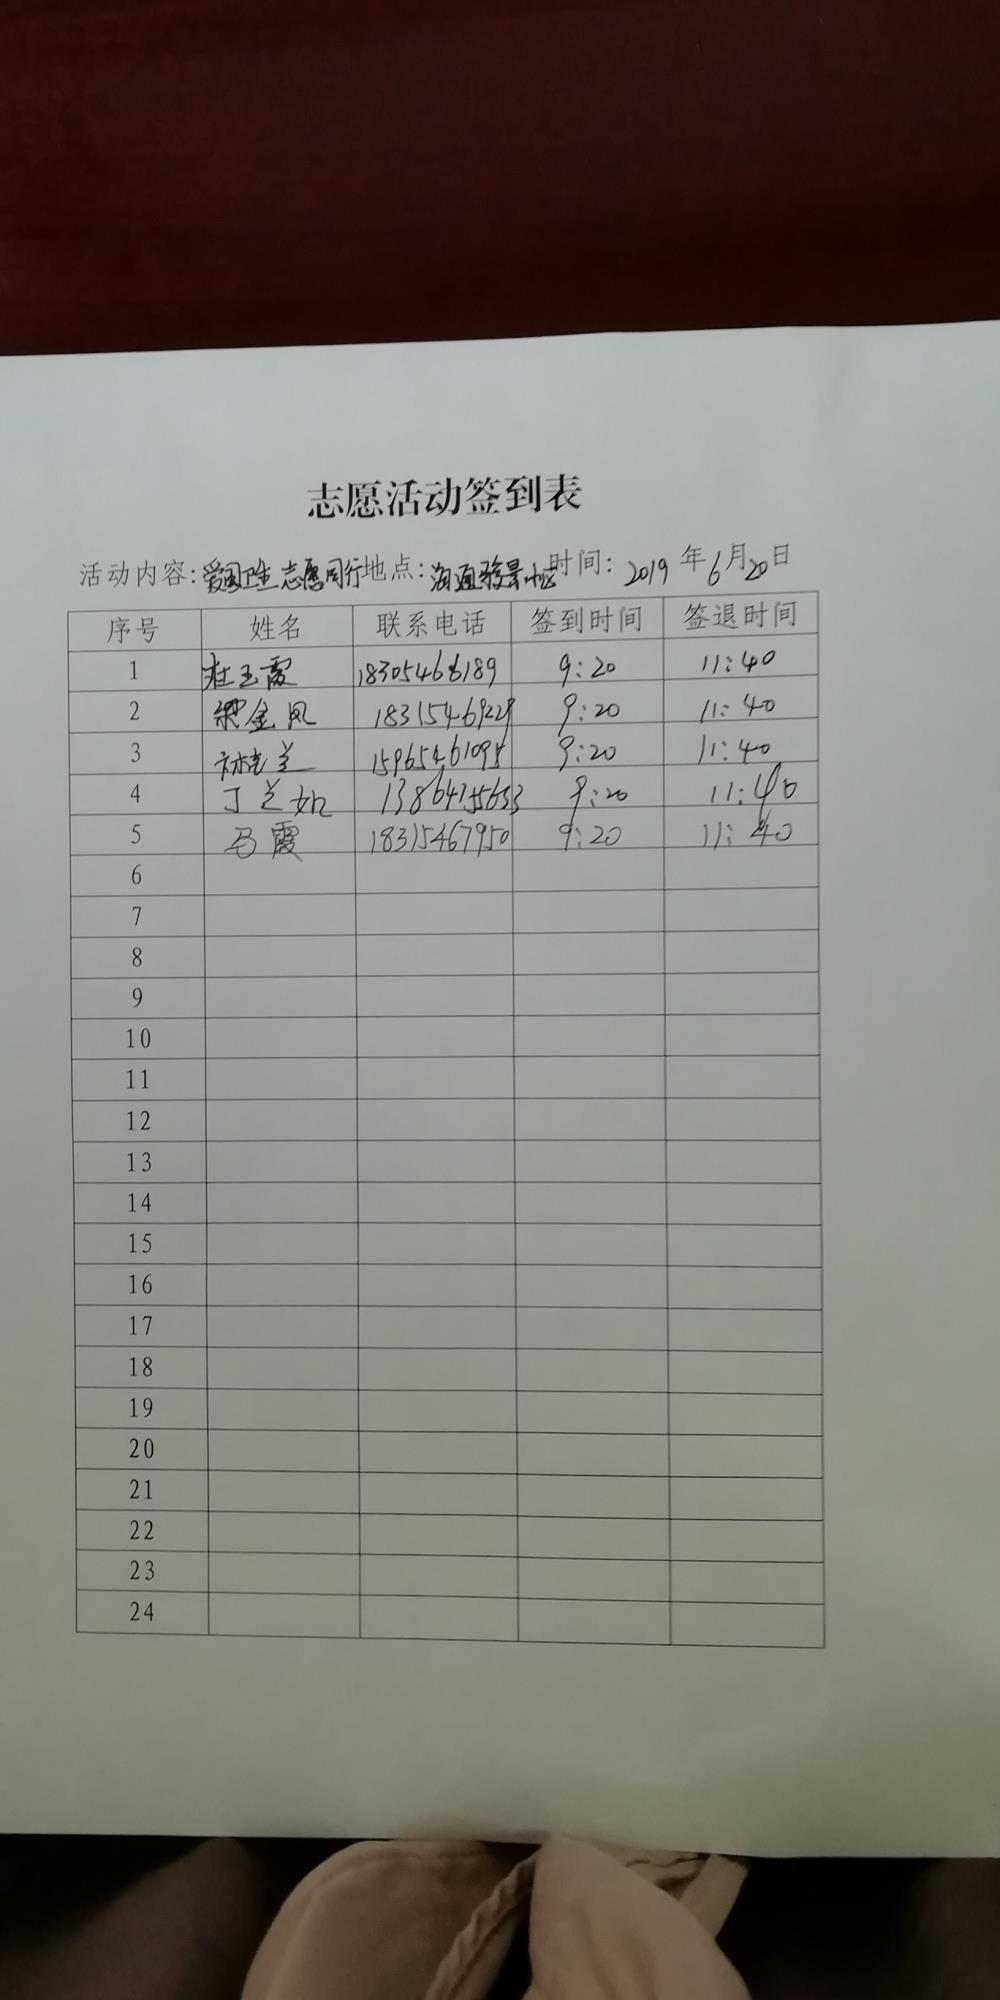 志愿活动签到表
活动内容:爱国卫生志愿同行地点:海通骏景小区时间: 2019年6月20日
序号 姓名 联系电话 签到时间 签退时间
1 杜玉霞 18305466189 9:20 11:40
2 梁金凤 9:20 11:40
3 9:20 11:40
4 丁兰如 9:20 11:40
5 马霞 18315467950 9:20 11:40
6
7
8
9
10
11
12
13
14
15
16
17
18
19
20
21
22
23
24